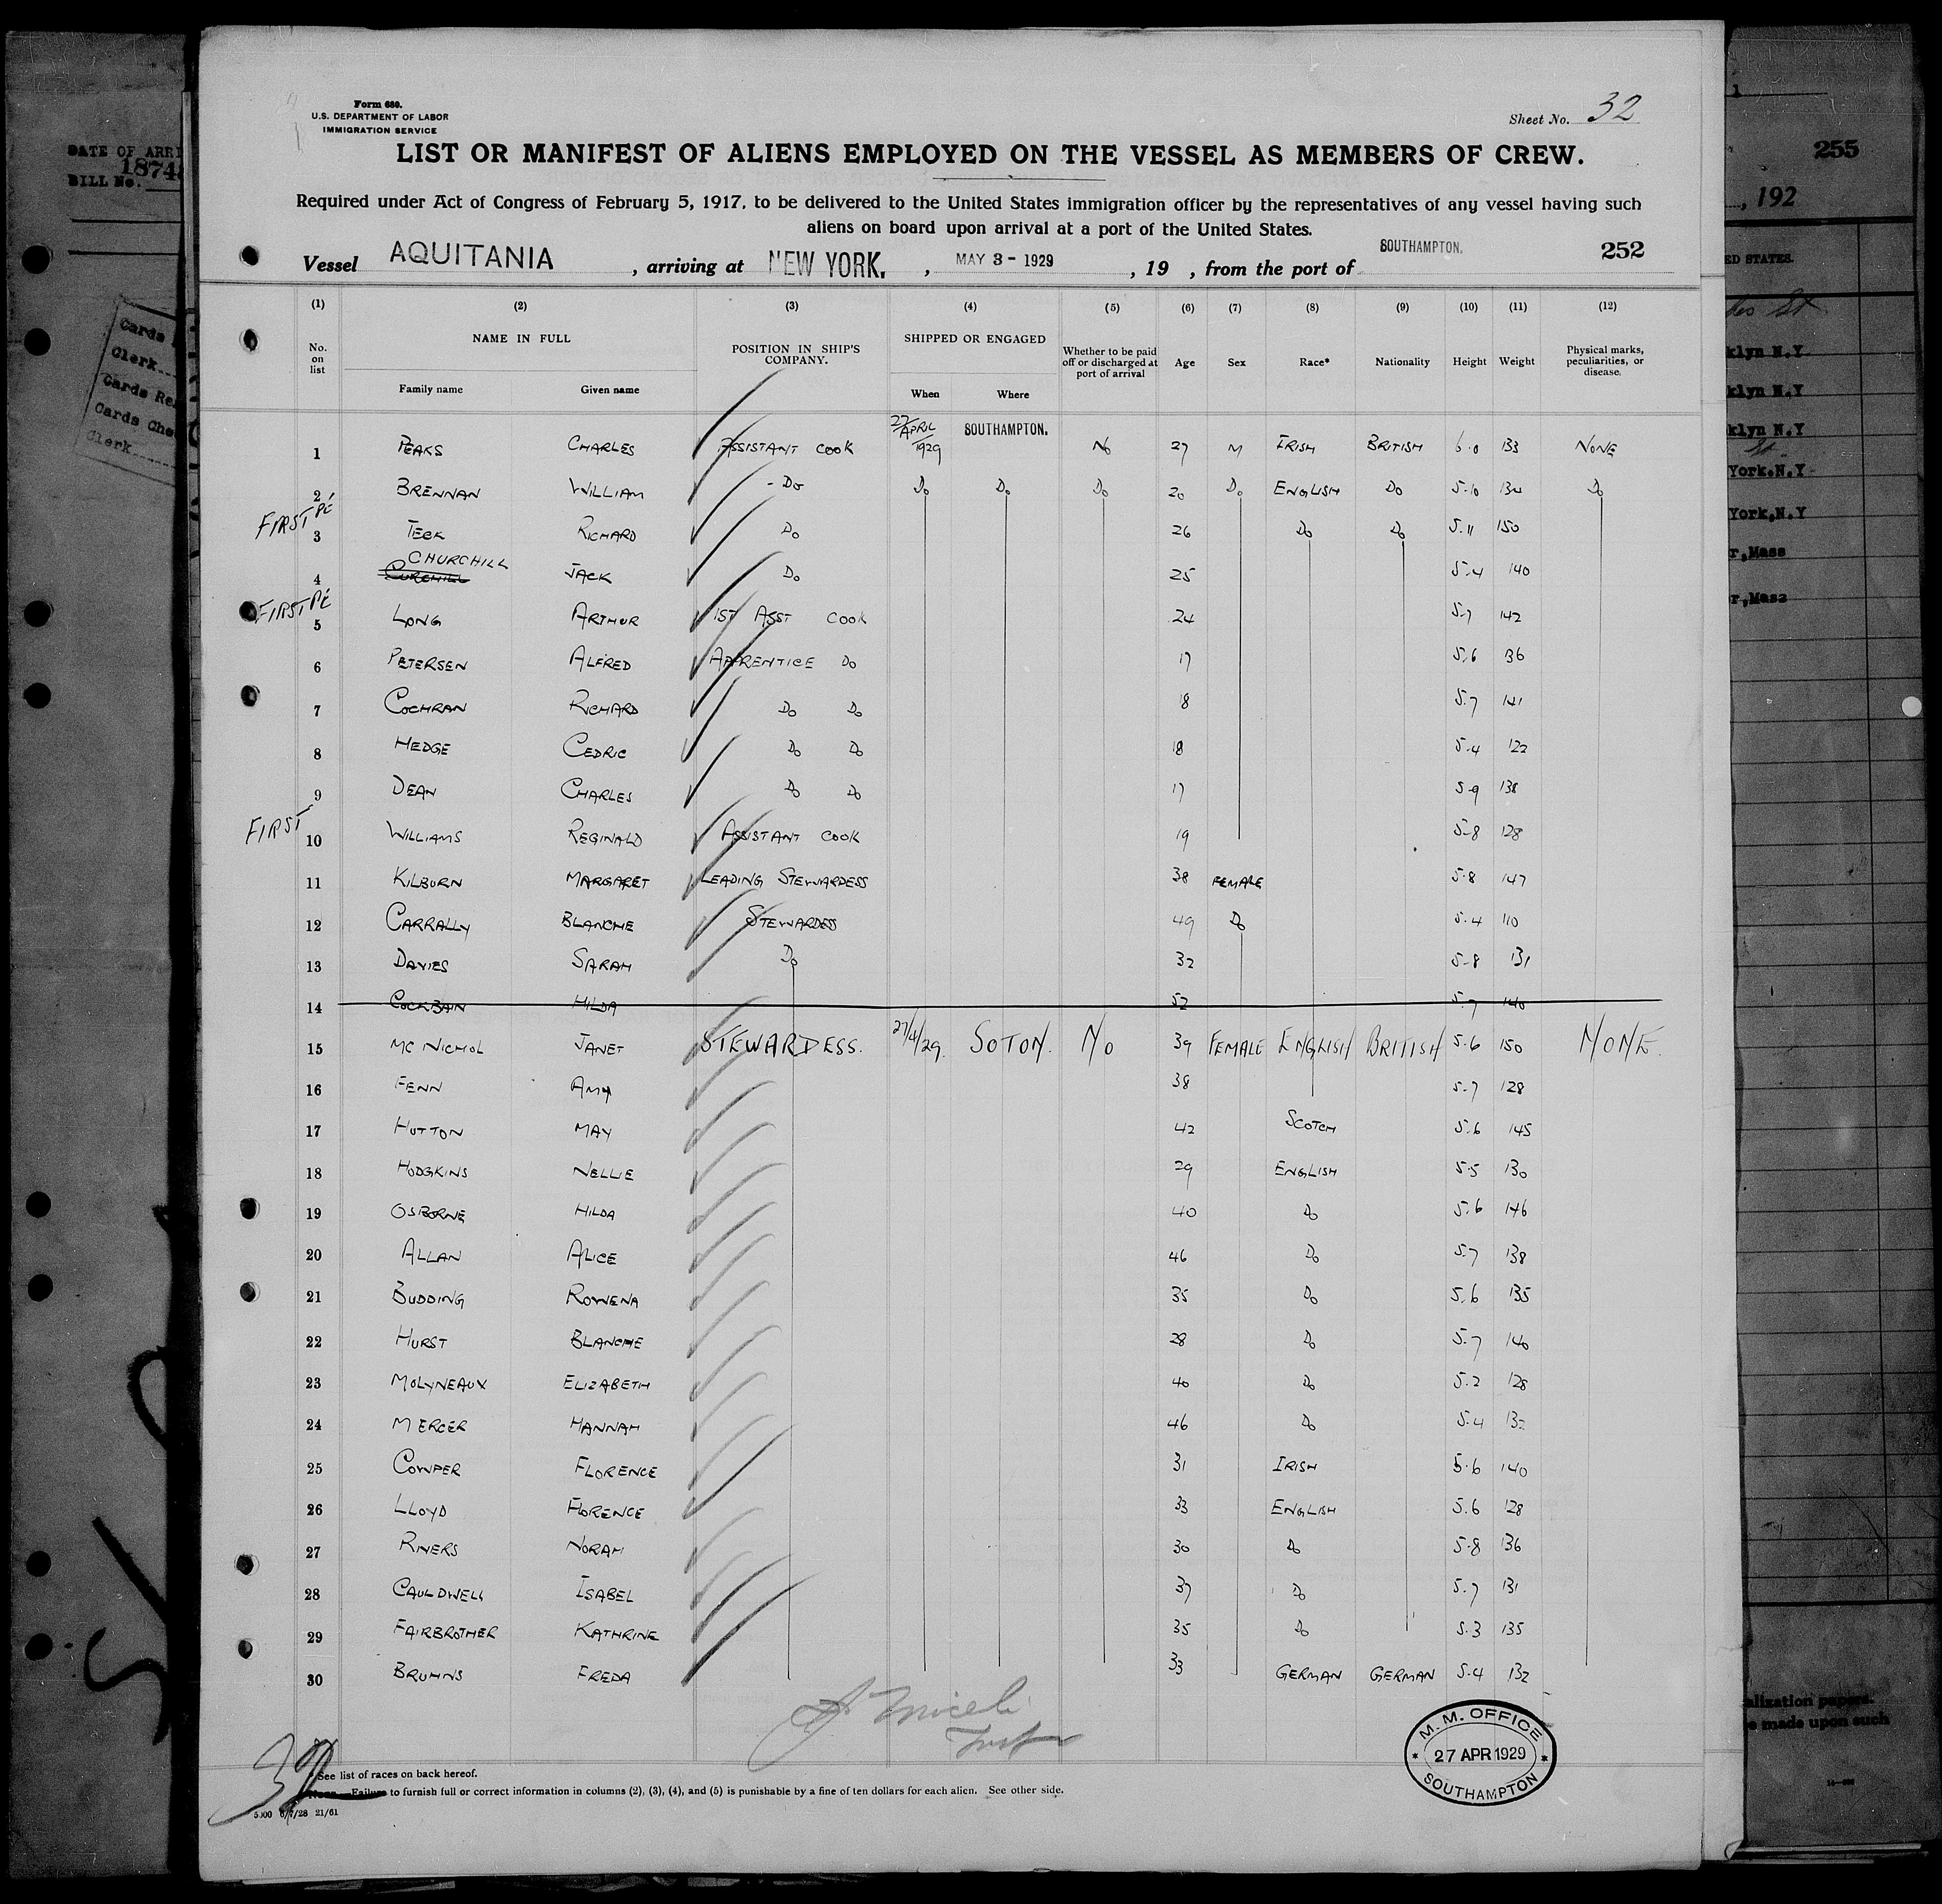 Form 680.
U.S. DEPARTMENT OF LABOR
IMMIGRATION SERVICE
Sheet No. 32
LIST OR MANIFEST OF ALIENS EMPLOYED ON THE VESSEL AS MEMBERS OF CREW.
Required under Act of Congress of February 5, 1917, to be delivered to the United States immigration officer by the representatives of any vessel having such
aliens on board upon arrival at a port of the United States.
Vessel AQUITANIA, arriving at NEW YORK., MAY 3 - 1929, 19 , from the port of SOUTHAMPTON. 252
(1) (2) (3) (4) (5) (6) (7) (8) (9) (10) (11) (12)
No. on list NAME IN FULL Family name Given name POSITION IN SHIP'S COMPANY. SHIPPED OR ENGAGED When Where Whether to be paid off or discharged at port of arrival Age Sex Race* Nationality Height Weight Physical marks, peculiarities, or disease.
1 PEAKS CHARLES ASSISTANT COOK 27/APRIL/1929 SOUTHAMPTON. No 27 M IRISH BRITISH 6.0 133 NONE
2 BRENNAN WILLIAM - Do Do Do Do 20 Do ENGLISH Do 5-10 134 Do
FIRST PE
3 TECK RICHARD Do 26 Do Do 5.11 150
4 CHURCHILL JACK Do 25 5.4 140
FIRST PE
5 LONG ARTHUR 1ST ASST COOK 24 5.7 142
6 PETERSEN ALFRED APPRENTICE Do 17 5.6 136
7 COCHRAN RICHARD Do Do 18 5.7 141
8 HEDGE CEDRIC Do Do 18 5.4 122
9 DEAN CHARLES Do Do 17 5-9 138
FIRST
10 WILLIAMS REGINALD ASSISTANT COOK 19 5-8 128
11 KILBURN MARGARET LEADING STEWARDESS 38 FEMALE 5.8 147
12 CARRALLY BLANCHE STEWARDESS 49 Do 5.4 110
13 DAVIES SARAH Do 32 5-8 131
14 COCKBAIN HILDA 52 5.7 140
15 MC NICHOL JANET STEWARDESS. 27/4/29. SOTON. No 39 FEMALE ENGLISH BRITISH 5.6 150 NONE.
16 FENN AMY 38 5.7 128
17 HUTTON MAY 42 SCOTCH 5.6 145
18 HODGKINS NELLIE 29 ENGLISH 5.5 130
19 OSBORNE HILDA 40 Do 5.6 146
20 ALLAN ALICE 46 Do 5.7 138
21 BUDDING ROWENA 35 Do 5.6 135
22 HURST BLANCHE 28 Do 5.7 140
23 MOLYNEAUX ELIZABETH 40 Do 5.2 128
24 MERCER HANNAH 46 Do 5.4 132
25 COWPER FLORENCE 31 IRISH 5.6 140
26 LLOYD FLORENCE 33 ENGLISH 5.6 128
27 RIVERS NORAH 30 Do 5.8 136
28 CAULDWELL ISABEL 37 Do 5.7 131
29 FAIRBROTHER KATHRINE 35 Do 5.3 135
30 BRUHNS FREDA 33 GERMAN GERMAN 5.4 132
M. M. OFFICE
27 APR 1929
SOUTHAMPTON
32
* See list of races on back hereof.
Note.—Failure to furnish full or correct information in columns (2), (3), (4), and (5) is punishable by a fine of ten dollars for each alien. See other side.
5000 6/7/28 21/61
DATE OF ARRI
BILL No.
Cards
Clerk
Cards Re
Cards Che
Clerk
255
, 192
ED STATES.
klyn N.Y
klyn N.Y
klyn N.Y
York.N.Y
York,N.Y
r,Mass
r,Mass
alization papers.
e made upon such